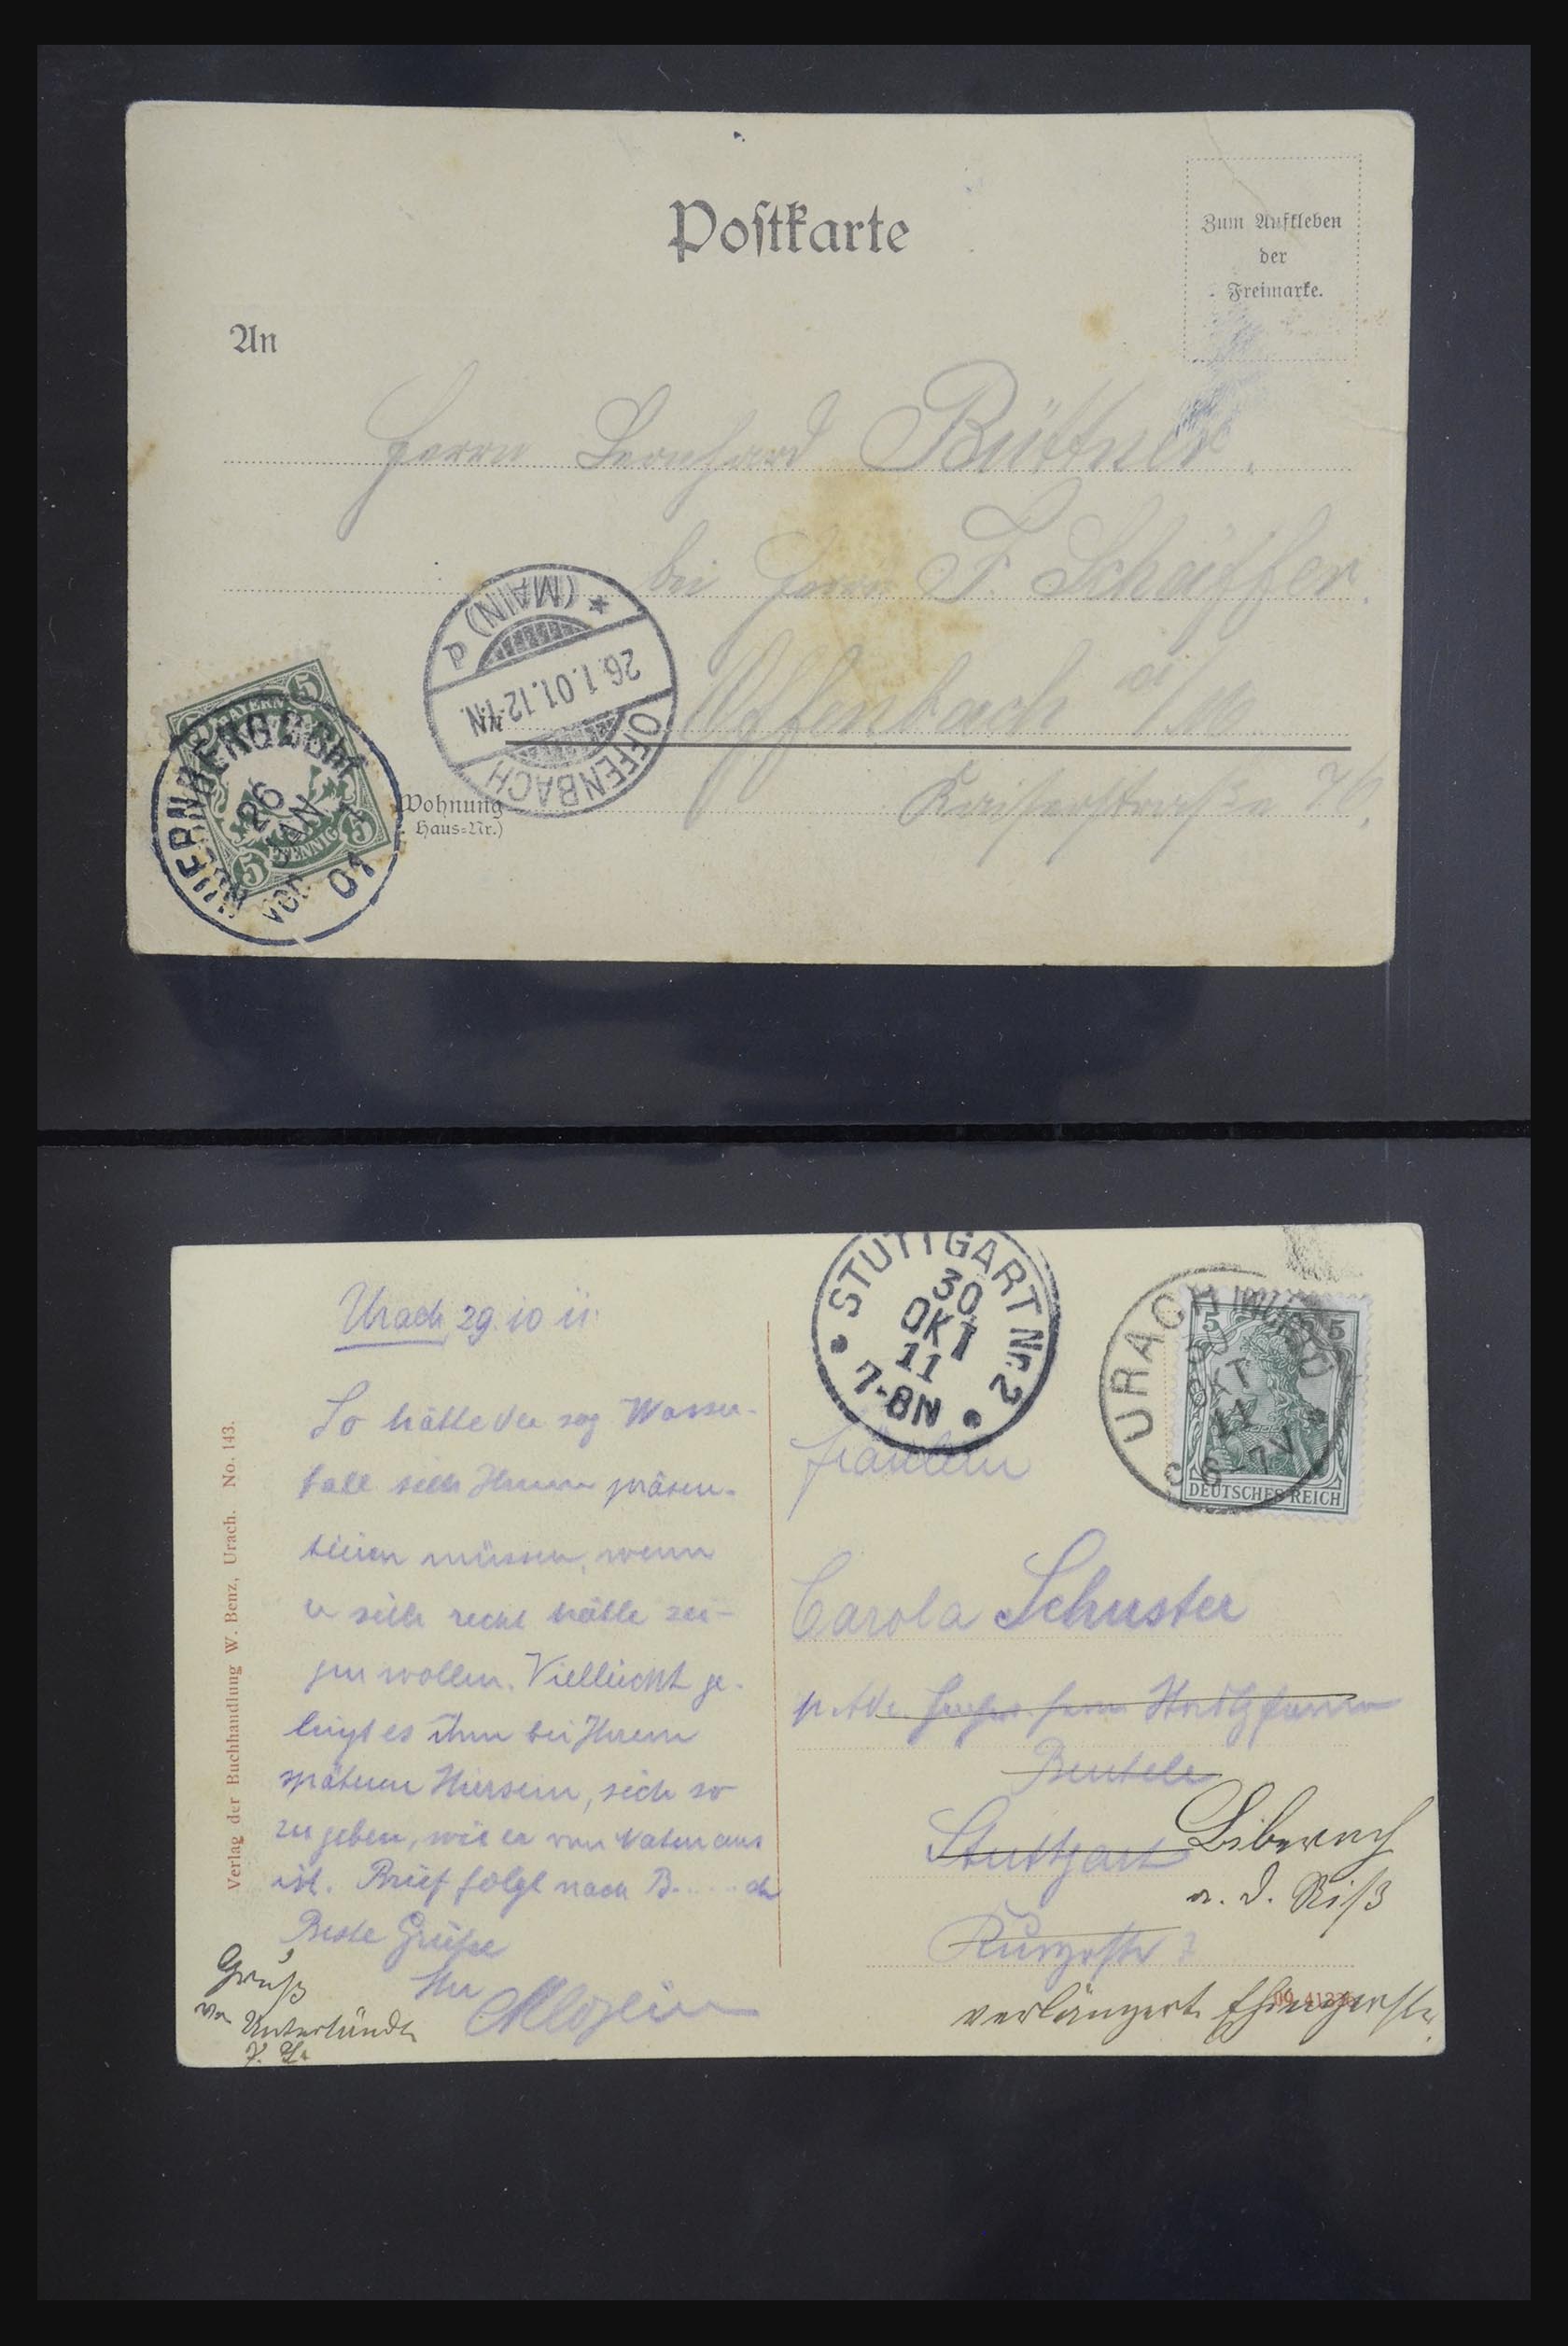 Postkarte
Zum Aufkleben
der
Freimarke.
An
Herrn Leonhard Büttner.
bei Herrn F. Schäffer.
Offenbach a/M
Kaiserstraße 76.
Wohnung
Haus=Nr.)
OFFENBACH
(MAIN) *
26.1.01.12-1N.
BAYERN
5 5 5
PFENNIG
NUERNBERG 2 Bhf
26
JAN
Vor
01
STUTTGART Nr. 2
30
OKT
11
7-8N
URACH
OKT
11
6-7V
5 5
DEUTSCHES REICH
Urach, 29.10.11.
So hätte der sog Wasser-
fall sich Ihnen präsen-
tieren müssen, wenn
er sich recht hätte zei-
gen wollen. Vielleicht ge-
lingt es ihm bei Ihrem
späteren Hiersein, sich so
zu geben, wie er von Natur aus
ist. Brief folgt nach B.....ch
Beste Grüße
Ihr
Gruß
von
Verlag der Buchhandlung W. Benz, Urach. No. 143.
Fräulein
Carola Schuster
Stuttgart Biberach
a. d. Riß
verlängerte Ehingerstr.